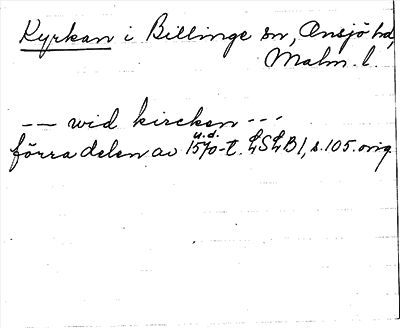 Kyrkan i Billinge sn, Onsjö hd,
Malm. l.
-- wid kircken ---
u.d.
förra delen av 1570-t. LSLB1, s. 105. orig